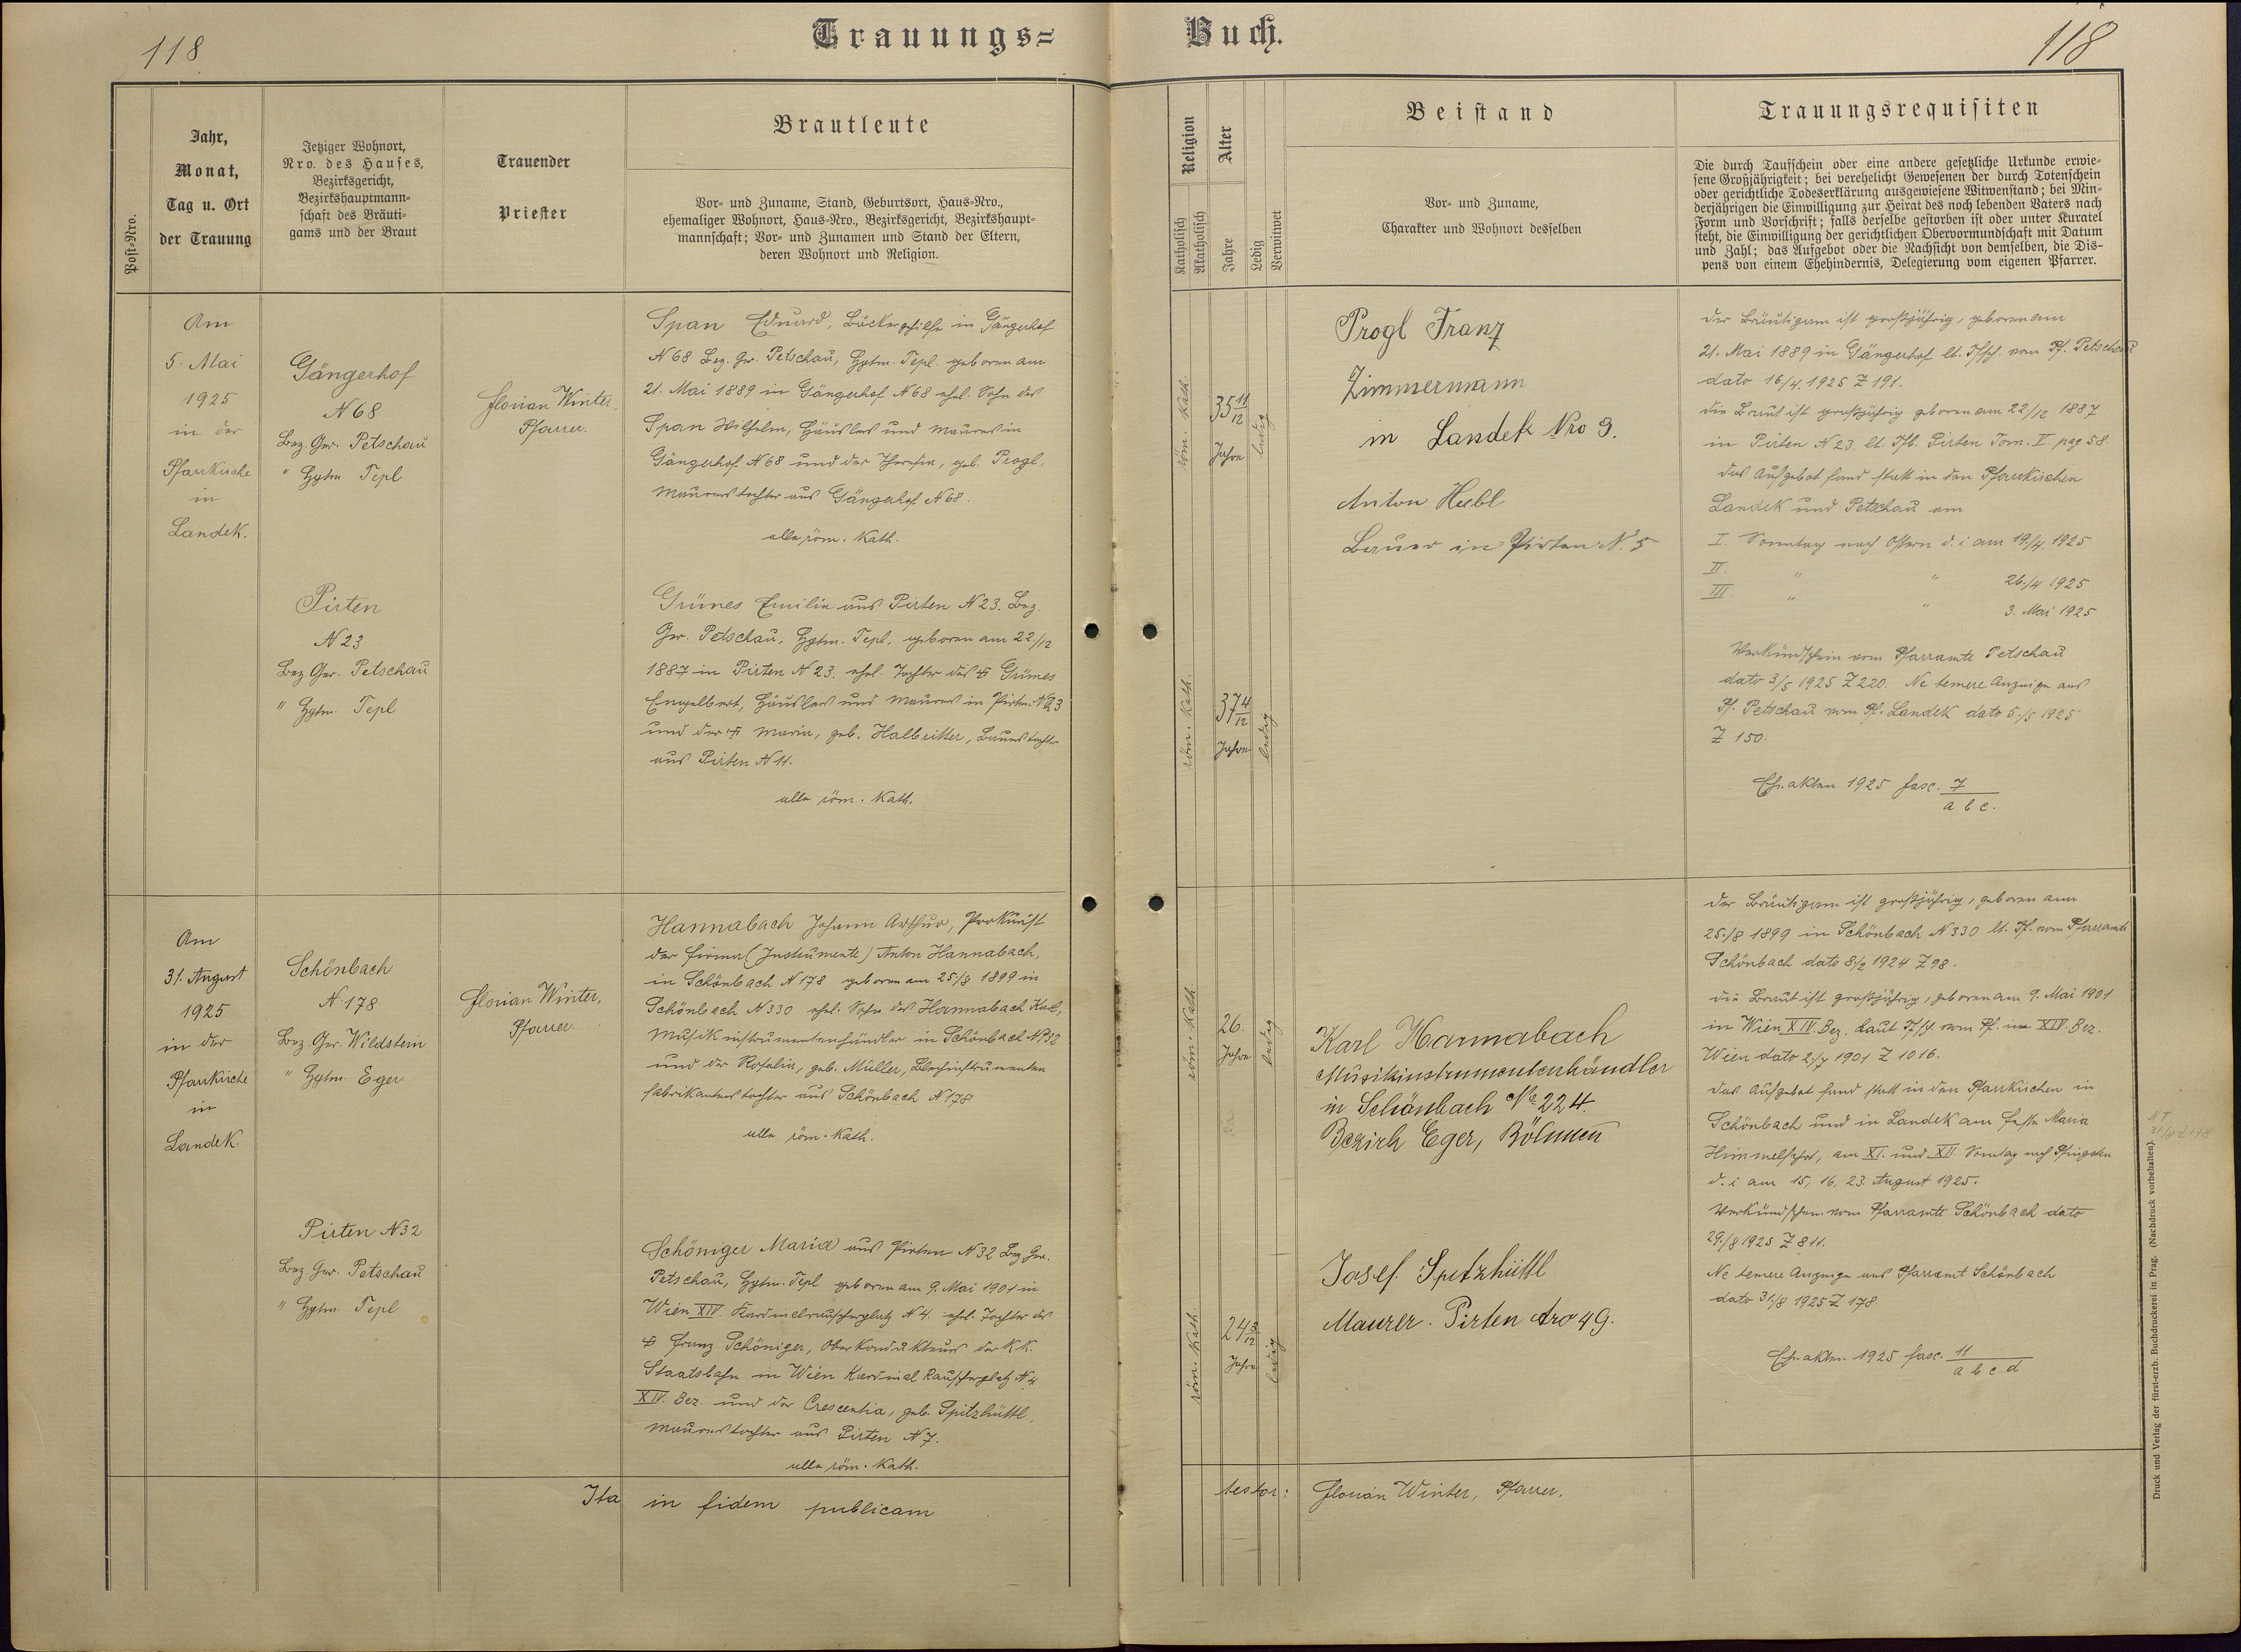 118
Trauungs=
Buch.
118
Post=Nro.
Jahr,
Monat,
Tag u. Ort
der Trauung
Jetziger Wohnort,
Nro. des Hauses,
Bezirksgericht,
Bezirkshauptmann=
schaft des Bräuti=
gams und der Braut
Trauender
Priester
Brautleute
Vor= und Zuname, Stand, Geburtsort, Haus=Nro.,
ehemaliger Wohnort, Haus=Nro., Bezirksgericht, Bezirkshaupt=
mannschaft; Vor= und Zunamen und Stand der Eltern,
deren Wohnort und Religion.
Religion
Katholisch
Akatholisch
Alter
Jahre
Ledig
Verwitwet
Beistand
Vor= und Zuname,
Charakter und Wohnort desselben
Trauungsrequisiten
Die durch Taufschein oder eine andere gesetzliche Urkunde erwie=
sene Großjährigkeit; bei verehelicht Gewesenen der durch Totenschein
oder gerichtliche Todeserklärung ausgewiesene Witwenstand; bei Min=
derjährigen die Einwilligung zur Heirat des noch lebenden Vaters nach
Form und Vorschrift; falls derselbe gestorben ist oder unter Kuratel
steht, die Einwilligung der gerichtlichen Obervormundschaft mit Datum
und Zahl; das Aufgebot oder die Nachsicht von demselben, die Dis=
pens von einem Ehehindernis, Delegierung vom eigenen Pfarrer.
Am
5. Mai
1925
in der
Pfarrkirche
in
Landek.
Gängerhof
N 68
Bez. Ger. Petschau
" Hptm Tepl
Florian Winter,
Pfarrer.
Span Eduard, Bäckergehilfe in Gängerhof
N 68 Bez. Ger. Petschau, Hptm. Tepl. geboren am
21. Mai 1889 in Gängerhof N 68 ehel. Sohn des
Span Wilhelm, Häuslers und Maurers in
Gängerhof N 68 und der Theresia, geb. Progl,
Maurerstochter aus Gängerhof N 68.
alle röm. Kath.
röm. Kath.
35 11/12
Jahre
ledig
Progl Franz
Zimmermann
in Landek Nro 9.
Anton Hubl
Bauer in Pirten N. 5
Der Bräutigam ist großjährig, geboren am
21. Mai 1889 in Gängerhof lt. Tfsch. vom Pf. Petschau
dato 16/4. 1925 Z 191.
die Braut ist großjährig geboren am 22/12 1887
in Pirten N 23. lt. Tfb. Pirten Tom. I. pag 58.
das Aufgebot fand statt in den Pfarrkirchen
Landek und Petschau am
I. Sonntag nach Ostern d. i am 19./4. 1925
II. " " 26./4 1925
III. " " 3. Mai 1925
Verkündschein vom Pfarramte Petschau
dato 3/5 1925 Z 220. Ne temere Anzeige ans
Pf. Petschau vom Pf. Landek dato 5./5 1925
Z 150.
Eheakten 1925 fasc. 7
a b c.
Pirten
N 23
Bez Ger. Petschau
" Hptm. Tepl
Grünes Emilie aus Pirten N 23. Bez.
Ger. Petschau, Hptm. Tepl, geboren am 22./12
1887 in Pirten N 23. ehel. Tochter des † Grünes
Engelbert, Häuslers und Maurers in Pirten N 23
und der † Maria, geb. Halbritter, Bauerstochter
aus Pirten N 11.
alle röm. Kath.
röm. Kath.
37 4/12
Jahre
ledig
Am
31. August
1925
in der
Pfarrkirche
in
Landek.
Schönbach
N. 178
Bez Ger. Wildstein
" Hptm. Eger
Florian Winter,
Pfarrer.
Hannabach Johann Arthur, Prokurist
der Firma (Instrumente) Anton Hannabach,
in Schönbach N 178 geboren am 25./8 1899 in
Schönbach N 330 ehel. Sohn des Hannabach Karl,
Musikinstrumentenhändler in Schönbach N 132
und der Rosalia, geb. Müller, Blechinstrumenten
fabrikantenstochter aus Schönbach N 178
alle röm. Kath.
röm. Kath.
26.
Jahre
ledig
Karl Hannabach
Musikinstrumentenhändler
in Schönbach No 224.
Bezirk Eger, Böhmen
Der Bräutigam ist großjährig, geboren am
25./8 1899 in Schönbach N 330 lt. Tf. vom Pfarramte
Schönbach dato 8./2 1924 Z 98.
die Braut ist großjährig, geboren am 9. Mai 1901
in Wien XIV. Bez. laut Tfsch. vom Pf. im XIV. Bez.
Wien dato 2./7 1901 Z 1016.
das Aufgebot fand statt in den Pfarrkirchen in
Schönbach und in Landek am Feste Maria
Himmelfahrt, am XI. und XII. Sonntag nach Pfingsten
d. i am 15, 16, 23. August 1925.
Verkündschein vom Pfarramte Schönbach dato
29./8 1925 Z 811.
Ne temere Anzeige ans Pfarramt Schönbach
dato 31./8 1925 Z 178
Eheakten. 1925 fasc. 11
a b c d
Pirten N 32
Bez Ger. Petschau
" Hptm. Tepl
Schöniger Maria aus Pirten N 32 Bez Ger.
Petschau, Hptm. Tepl geboren am 9. Mai 1901 in
Wien XIV. Kardinalrauscherplatz N 4. ehel. Tochter des
† Franz Schöniger, Oberkondukteurs der K.K.
Staatsbahn in Wien Kardinal Rauscherplatz N 4
XIV. Bez. und der Crescentia, geb. Spitzhüttl,
Maurerstochter aus Pirten N 7.
alle röm. Kath.
röm. Kath.
24 3/12
Jahre
ledig
Josef Spitzhüttl
Maurer. Pirten Nro 49.
Ita in fidem publicam
testor: Florian Winter, Pfarrer.
Druck und Verlag der fürst-erzb. Buchdruckerei in Prag. (Nachdruck vorbehalten)